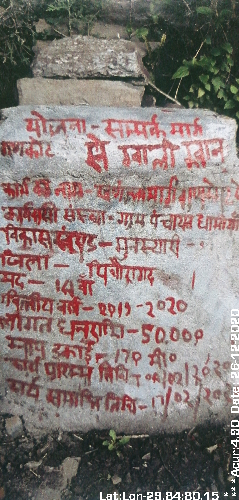 योजना - सम्पर्क मार्ग
से ग्वाली उडान
कार्य का नाम -
कार्यदायी संस्था - ग्राम पंचायत धामीगाँव
विकास खण्ड - मुनस्यारी
जिला - पिथौरागढ़
मद - 14 वाँ
वित्तीय वर्ष - 2019-2020
लागत धनराशि - 50,000
इकाई - 170 मी०
कार्य प्रारम्भ तिथि - 02/2020
कार्य समाप्ति तिथि - /02/20
Lat:Lon-29.84:80.15
***Acur:4.90 Date:26-12-2020 ***